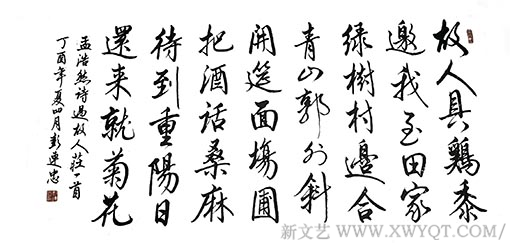 故人具鷄黍
邀我至田家
緑樹村邉合
青山郭外斜
開筵面塲圃
把酒話桑麻
待到重陽日
還来就菊花
孟浩然诗過故人莊一首
丁酉年夏四月彭連忠
新文艺 WWW.XWYQT.COM